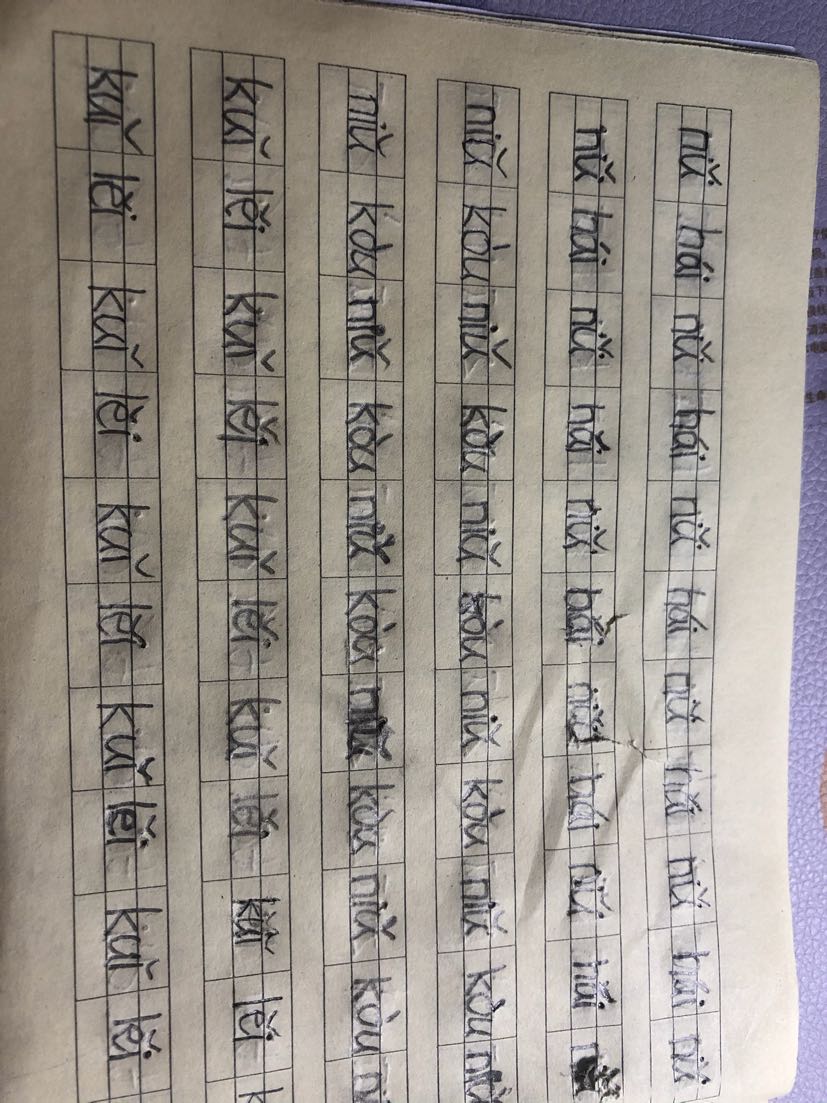 nǚ hái nǚ hái nǚ hái nǚ nǚ hái nǚ
nǚ hái nǚ nǚ nǚ hái nǚ hái
niǔ kòu niǔ kòu niǔ kòu niǔ kòu niǔ kòu niǔ
niǔ kòu niǔ kòu niǔ kòu niǔ kòu niǔ kòu ni
kuǐ lěi kuǐ lěi kuǐ lěi kuǐ lěi kuǐ lěi k
kuǐ lěi kuǐ lěi kuǐ lěi kuǐ lěi kuǐ lěi